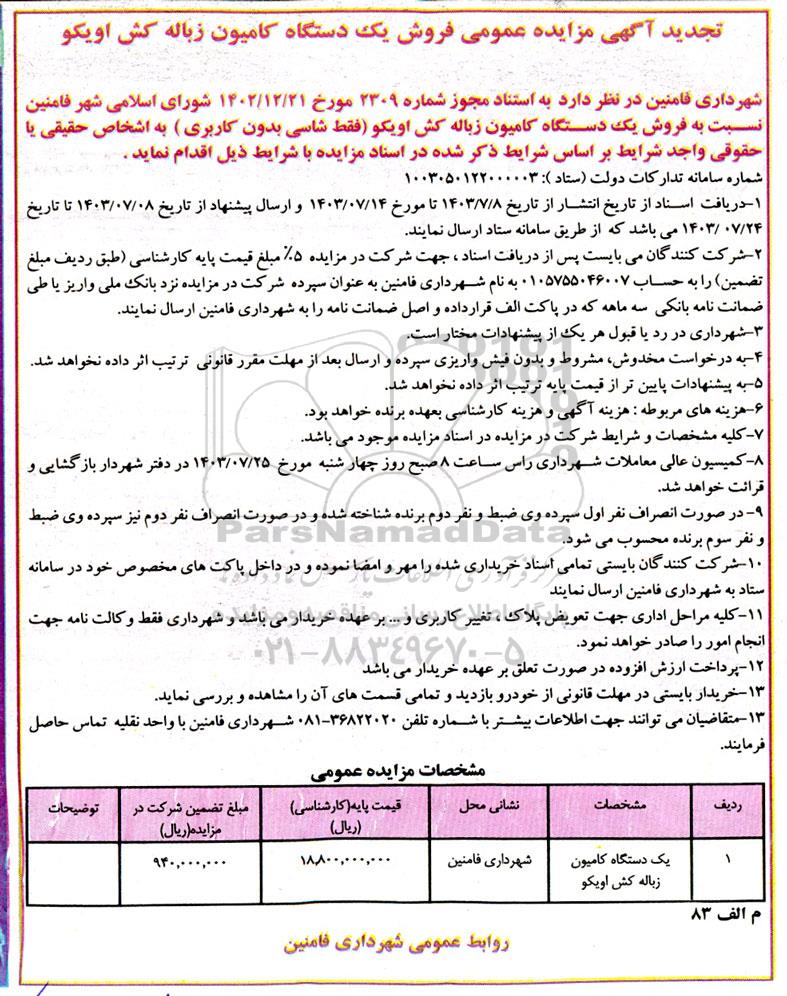 تجدید آگهی مزایده عمومی فروش یک دستگاه کامیون زباله کش اویکو
شهرداری فامنین در نظر دارد به استناد مجوز شماره ۲۳۰۹ مورخ ۱۴۰۲/۱۲/۲۱ شورای اسلامی شهر فامنین
نسبت به فروش یک دستگاه کامیون زباله کش اویکو (فقط شاسی بدون کاربری ) به اشخاص حقیقی یا
حقوقی واجد شرایط بر اساس شرایط ذکر شده در اسناد مزایده با شرایط ذیل اقدام نماید .
شماره سامانه تدارکات دولت (ستاد ): ۱۰۰۳۰۵۰۱۲۲۰۰۰۰۰۳
۱-دریافت اسناد از تاریخ انتشار از تاریخ ۱۴۰۳/۷/۸ تا مورخ ۱۴۰۳/۰۷/۱۴ و ارسال پیشنهاد از تاریخ ۱۴۰۳/۰۷/۰۸ تا تاریخ
۱۴۰۳/ ۰۷/۲۴ می باشد که از طریق سامانه ستاد ارسال نمایند.
۲-شرکت کنندگان می بایست پس از دریافت اسناد ، جهت شرکت در مزایده ۵٪ مبلغ قیمت پایه کارشناسی (طبق ردیف مبلغ
تضمین) را به حساب ۰۱۰۵۷۵۵۰۴۶۰۰۷ به نام شهرداری فامنین به عنوان سپرده شرکت در مزایده نزد بانک ملی واریز یا طی
ضمانت نامه بانکی سه ماهه که در پاکت الف قرارداده و اصل ضمانت نامه را به شهرداری فامنین ارسال نمایند.
۳-شهرداری در رد یا قبول هر یک از پیشنهادات مختار است.
۴-به درخواست مخدوش، مشروط و بدون فیش واریزی سپرده و ارسال بعد از مهلت مقرر قانونی ترتیب اثر داده نخواهد شد.
۵-به پیشنهادات پایین تر از قیمت پایه ترتیب اثر داده نخواهد شد.
۶-هزینه های مربوطه : هزینه آگهی و هزینه کارشناسی بعهده برنده خواهد بود.
۷-کلیه مشخصات و شرایط شرکت در مزایده در اسناد مزایده موجود می باشد.
۸-کمیسیون عالی معاملات شهرداری راس ساعت ۸ صبح روز چهار شنبه مورخ ۱۴۰۳/۰۷/۲۵ در دفتر شهردار بازگشایی و
قرائت خواهد شد.
۹- در صورت انصراف نفر اول سپرده وی ضبط و نفر دوم برنده شناخته شده و در صورت انصراف نفر دوم نیز سپرده وی ضبط
و نفر سوم برنده محسوب می شود.
ParsNamadData
۱۰-شرکت کنندگان بایستی تمامی اسناد خریداری شده را مهر و امضا نموده و در داخل پاکت های مخصوص خود در سامانه
ستاد به شهرداری فامنین ارسال نمایند
پایگاه اطلاع رسانی مناقصه و مزایده
۱۱-کلیه مراحل اداری جهت تعویض پلاک ، تغییر کاربری و ... بر عهده خریدار می باشد و شهرداری فقط وکالت نامه جهت
انجام امور را صادر خواهد نمود.
۰۲۱-۸۸۳۴۹۶۷۰-۵
۱۲-پرداخت ارزش افزوده در صورت تعلق بر عهده خریدار می باشد
۱۳-خریدار بایستی در مهلت قانونی از خودرو بازدید و تمامی قسمت های آن را مشاهده و بررسی نماید.
۱۳-متقاضیان می توانند جهت اطلاعات بیشتر با شماره تلفن ۳۶۸۲۲۰۲۰-۰۸۱ شهرداری فامنین با واحد نقلیه تماس حاصل
فرمایند.
مشخصات مزایده عمومی
ردیف مشخصات نشانی محل قیمت پایه(کارشناسی) (ریال) مبلغ تضمین شرکت در مزایده(ریال) توضیحات
۱ یک دستگاه کامیون زباله کش اویکو شهرداری فامنین ۱۸,۸۰۰,۰۰۰,۰۰۰ ۹۴۰,۰۰۰,۰۰۰
م الف ۸۳
روابط عمومی شهرداری فامنین